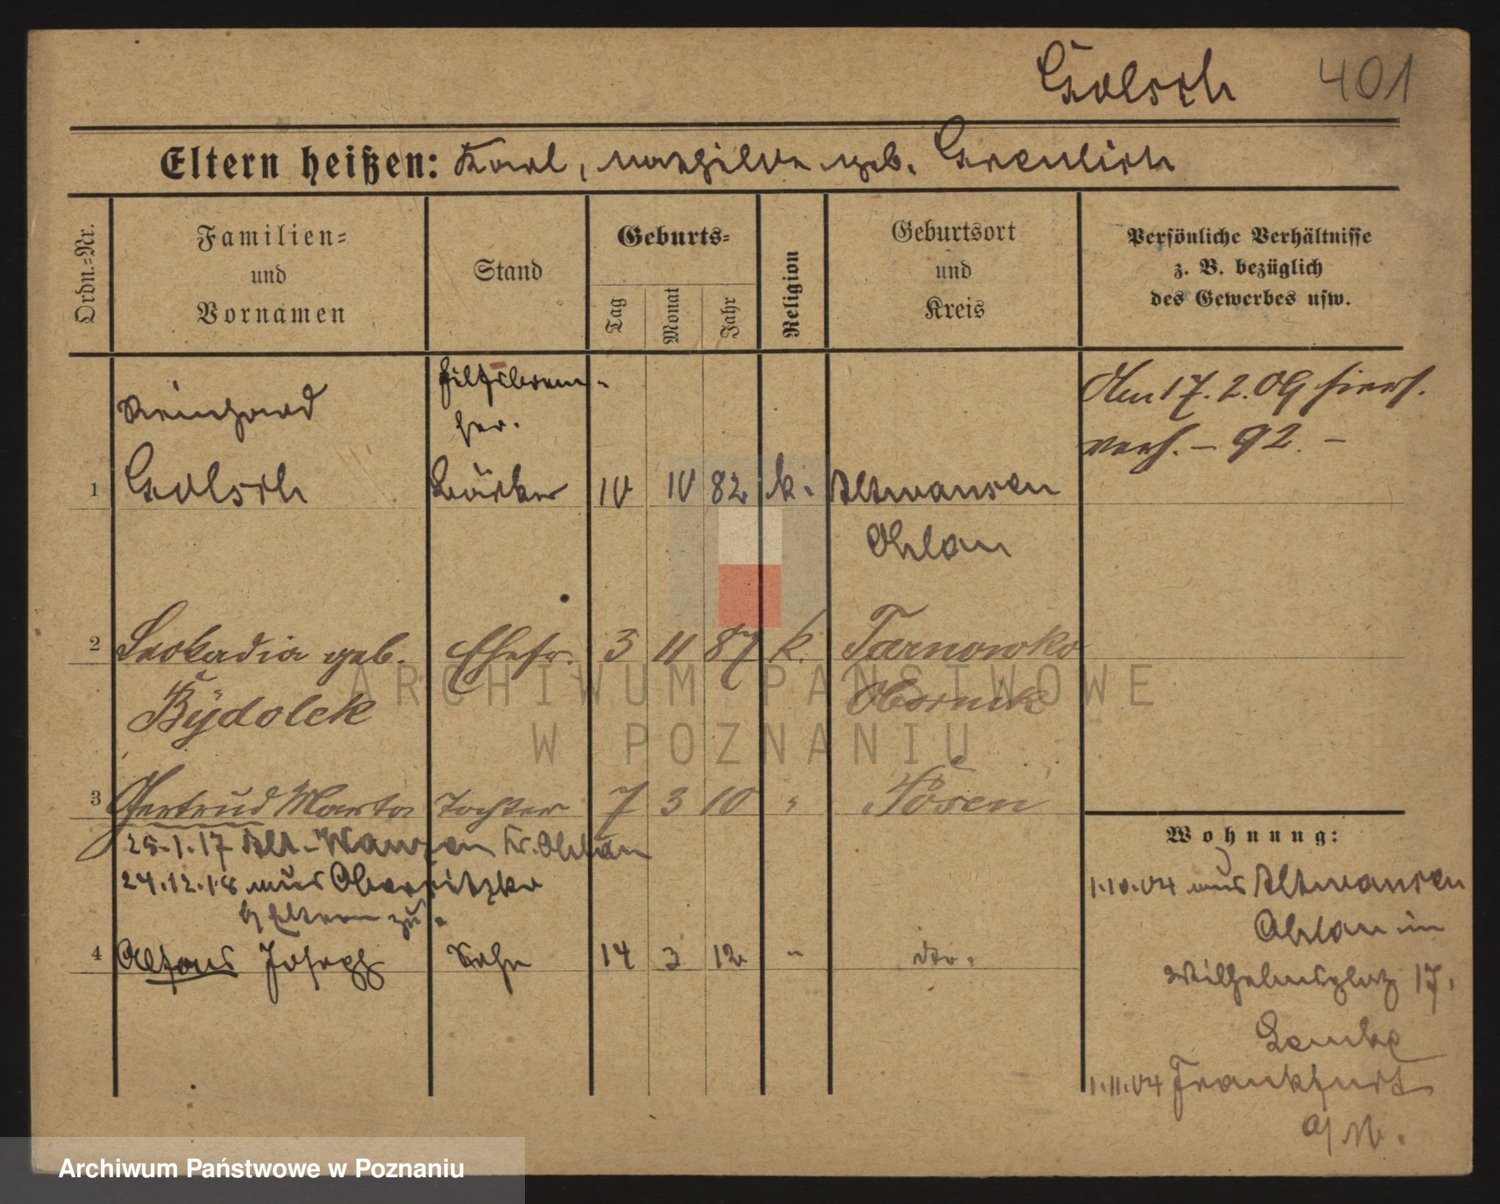 Golsch 401
Eltern heißen: Karl, Mathilde geb. Grenlich
Ordn.-Nr.
Familien-
und
Vornamen
Stand
Geburts-
Tag
Monat
Jahr
Religion
Geburtsort
und
Kreis
Persönliche Verhältnisse
z. B. bezüglich
des Gewerbes usw.
Hilfsbrem-
ser.
Reinhard
Am 17.2.09 hiers.
verh. – 92. –
1 Golsch Bäcker 10 10 82 k. Altwansen
Ohlau
2 Leokadia geb. Ehefr. 3 11 87 k. Tarnowko
Bydolek Obornik
ARCHIWUM PAŃSTWOWE
W POZNANIU
3 Gertrud Marta Tochter 7 3 10 " Posen
25.1.17 Alt-Wansen Kr. Ohlau
24.12.18 aus Obersitzko
b/ Eltern zu.
4 Alfons Joseph Sohn 14 3 12 " do.
Wohnung:
1.10.04 aus Altwansen
Ohlau in
Wilhelmsplatz 17.
Lemke
1.11.04 Frankfurt
a/M.
Archiwum Państwowe w Poznaniu